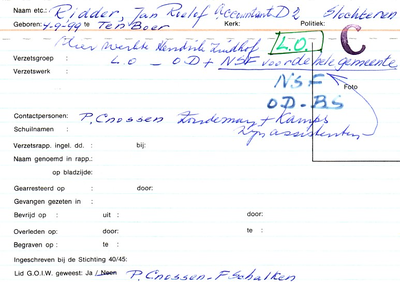 Naam etc.: Ridder, Jan Roelf Accountant D2 Slochteren
Geboren: 4-9-99 te Ten Boer Kerk: Politiek:
Hendrik Zuidhof L.O. C
Verzetsgroep : L.O - OD + NSF voor de hele gemeente
Verzetswerk :
NSF
Foto
OD-BS
Contactpersonen: P. Cnossen + Kamps
Schuilnaam : zijn assistenten
Verzetsrapp. ingel. dd. : bij:
Naam genoemd in rapp.:
op bladzijde:
Gearresteerd op : door:
Gevangen gezeten in :
Bevrijd op : uit : door:
Overleden op : door: te :
Begraven op : te :
Ingeschreven bij de Stichting 40/45:
Lid G.O.I.W. geweest: Ja / Neen P. Cnossen - F Schalken